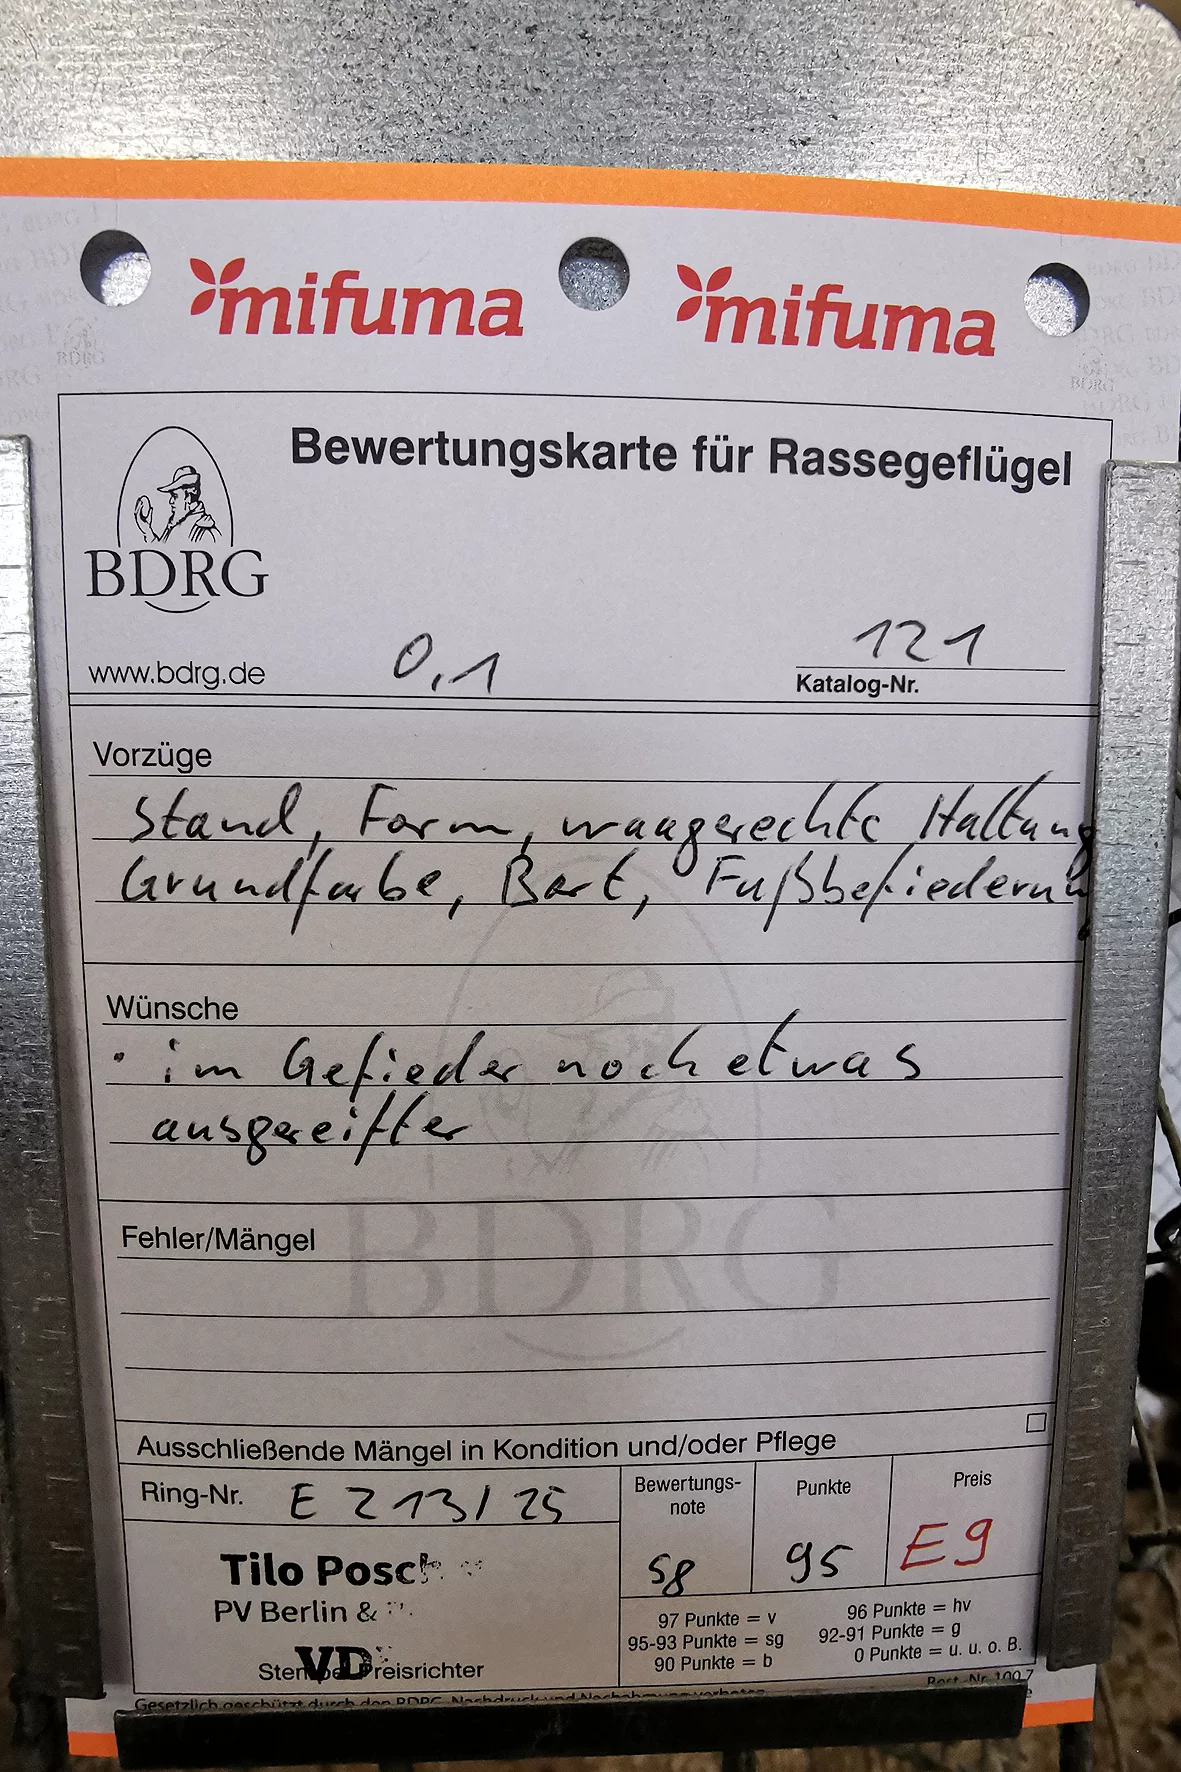 mifuma mifuma
Bewertungskarte für Rassegeflügel
BDRG
www.bdrg.de
0,1
121
Katalog-Nr.
Vorzüge
Stand, Form, waagerechte Haltung
Grundfarbe, Bart, Fußbefiederung
Wünsche
· im Gefieder noch etwas
ausgereifter
BDRG
Fehler/Mängel
Ausschließende Mängel in Kondition und/oder Pflege
Ring-Nr. E Z 13/25
Bewertungs-
note
sg
Punkte
95
Preis
E9
Tilo
PV Berlin &
VD
Stempel Preisrichter
97 Punkte = v
96 Punkte = hv
95-93 Punkte = sg
92-91 Punkte = g
90 Punkte = b
0 Punkte = u. u. o. B.
Gesetzlich geschützt durch den BDRG, Nachdruck und Nachahmung verboten
Best.-Nr. 100.7